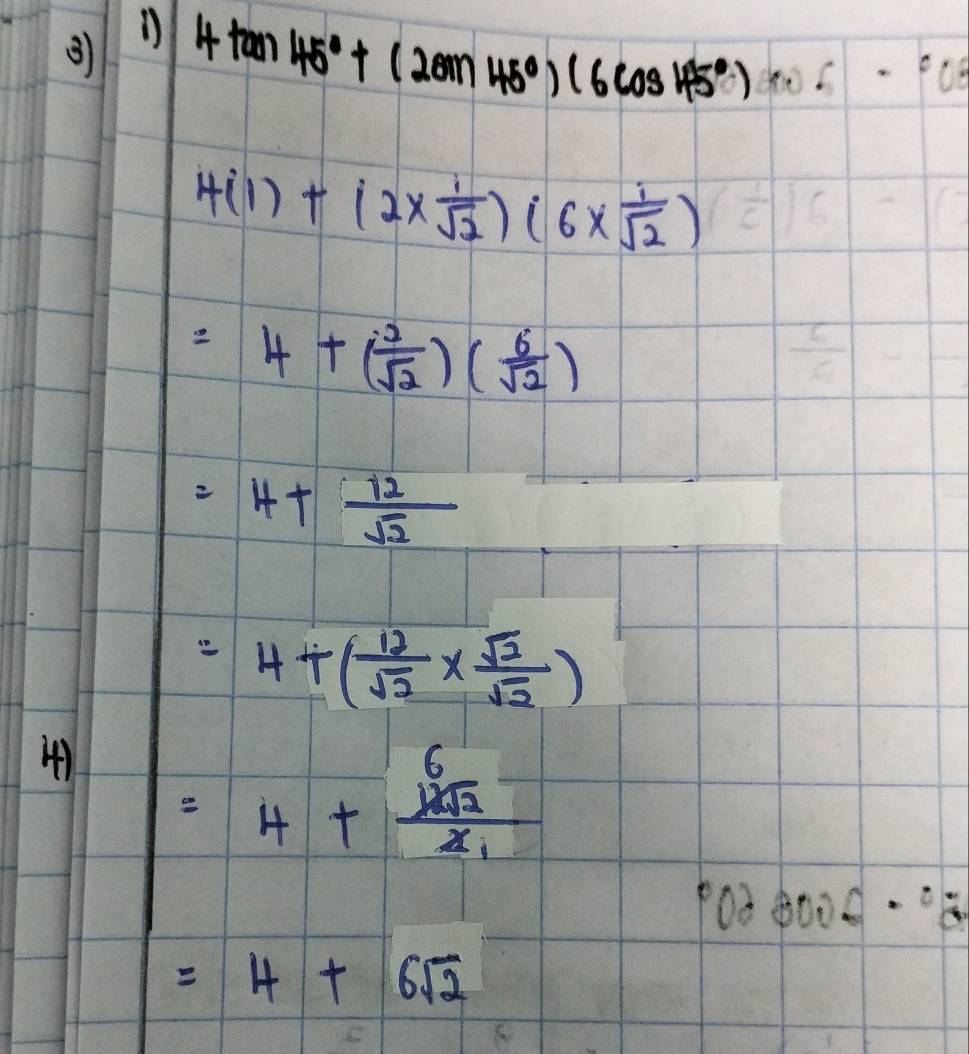 3) i) 4 tan 45° + (2 sin 45°)(6 cos 45°)
4(1) + (2 × 1/√2)(6 × 1/√2)
= 4 + (2/√2)(6/√2)
= 4 + 12/√2
= 4 + (12/√2 × √2/√2)
4)
= 4 + 6 12√2/2 1
= 4 + 6√2